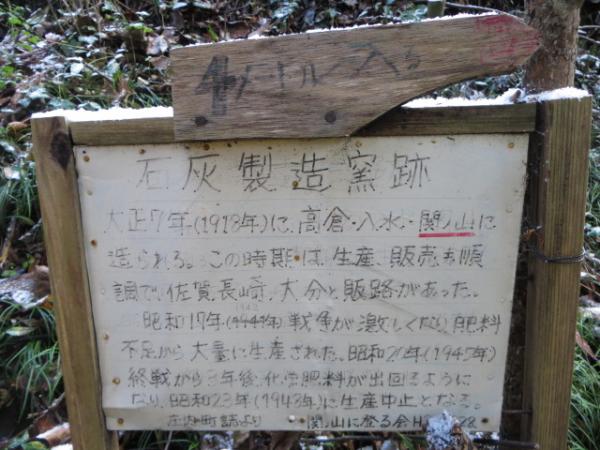 4メートル入る
石灰製造窯跡
大正7年(1918年)に、高倉・入水・関ノ山に
造られる。この時期は、生産、販売も順
調で、佐賀、長崎、大分と販路があった。
昭和17年(1942年)戦争が激しくなり、肥料
不足から大量に生産された。昭和20年(1945年)
終戦から3年後、化学肥料が出回るように
なり、昭和23年(1948年)に生産中止となる。
庄内町誌より 関ノ山に登る会